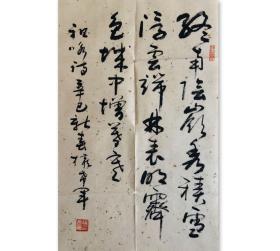 终南阴岭秀积雪
浮云端林表明霁
色城中增暮寒
祖咏诗辛巳新春